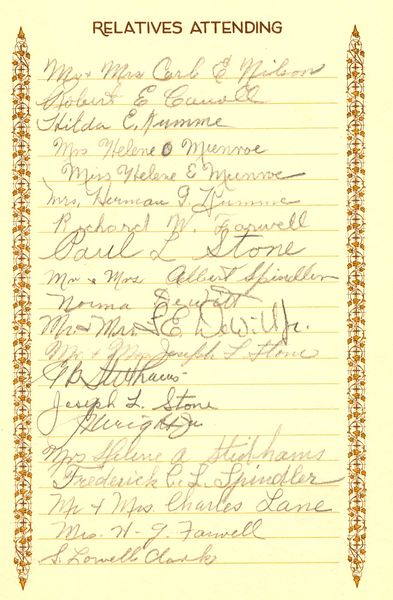 RELATIVES ATTENDING
Mr & Mrs Carl E Nilson
Robert E Carroll
Hilda C. Kumme
Mrs Helene O Munroe
Miss Helene E Munroe
Mrs. Herman G. Kumme
Richard W. Farwell
Paul L Stone
Mr & Mrs Albert Spindler
Norma Dewitt
Mr & Mrs F. E. DeWitt Jr.
Mr & Mrs Joseph L Stone
Stidhams
Joseph L. Stone
Mrs Helene A Stidhams
Frederick C. L. Spindler
Mr & Mrs Charles Lane
Mrs. H. G. Farwell
S. Lowell Clark